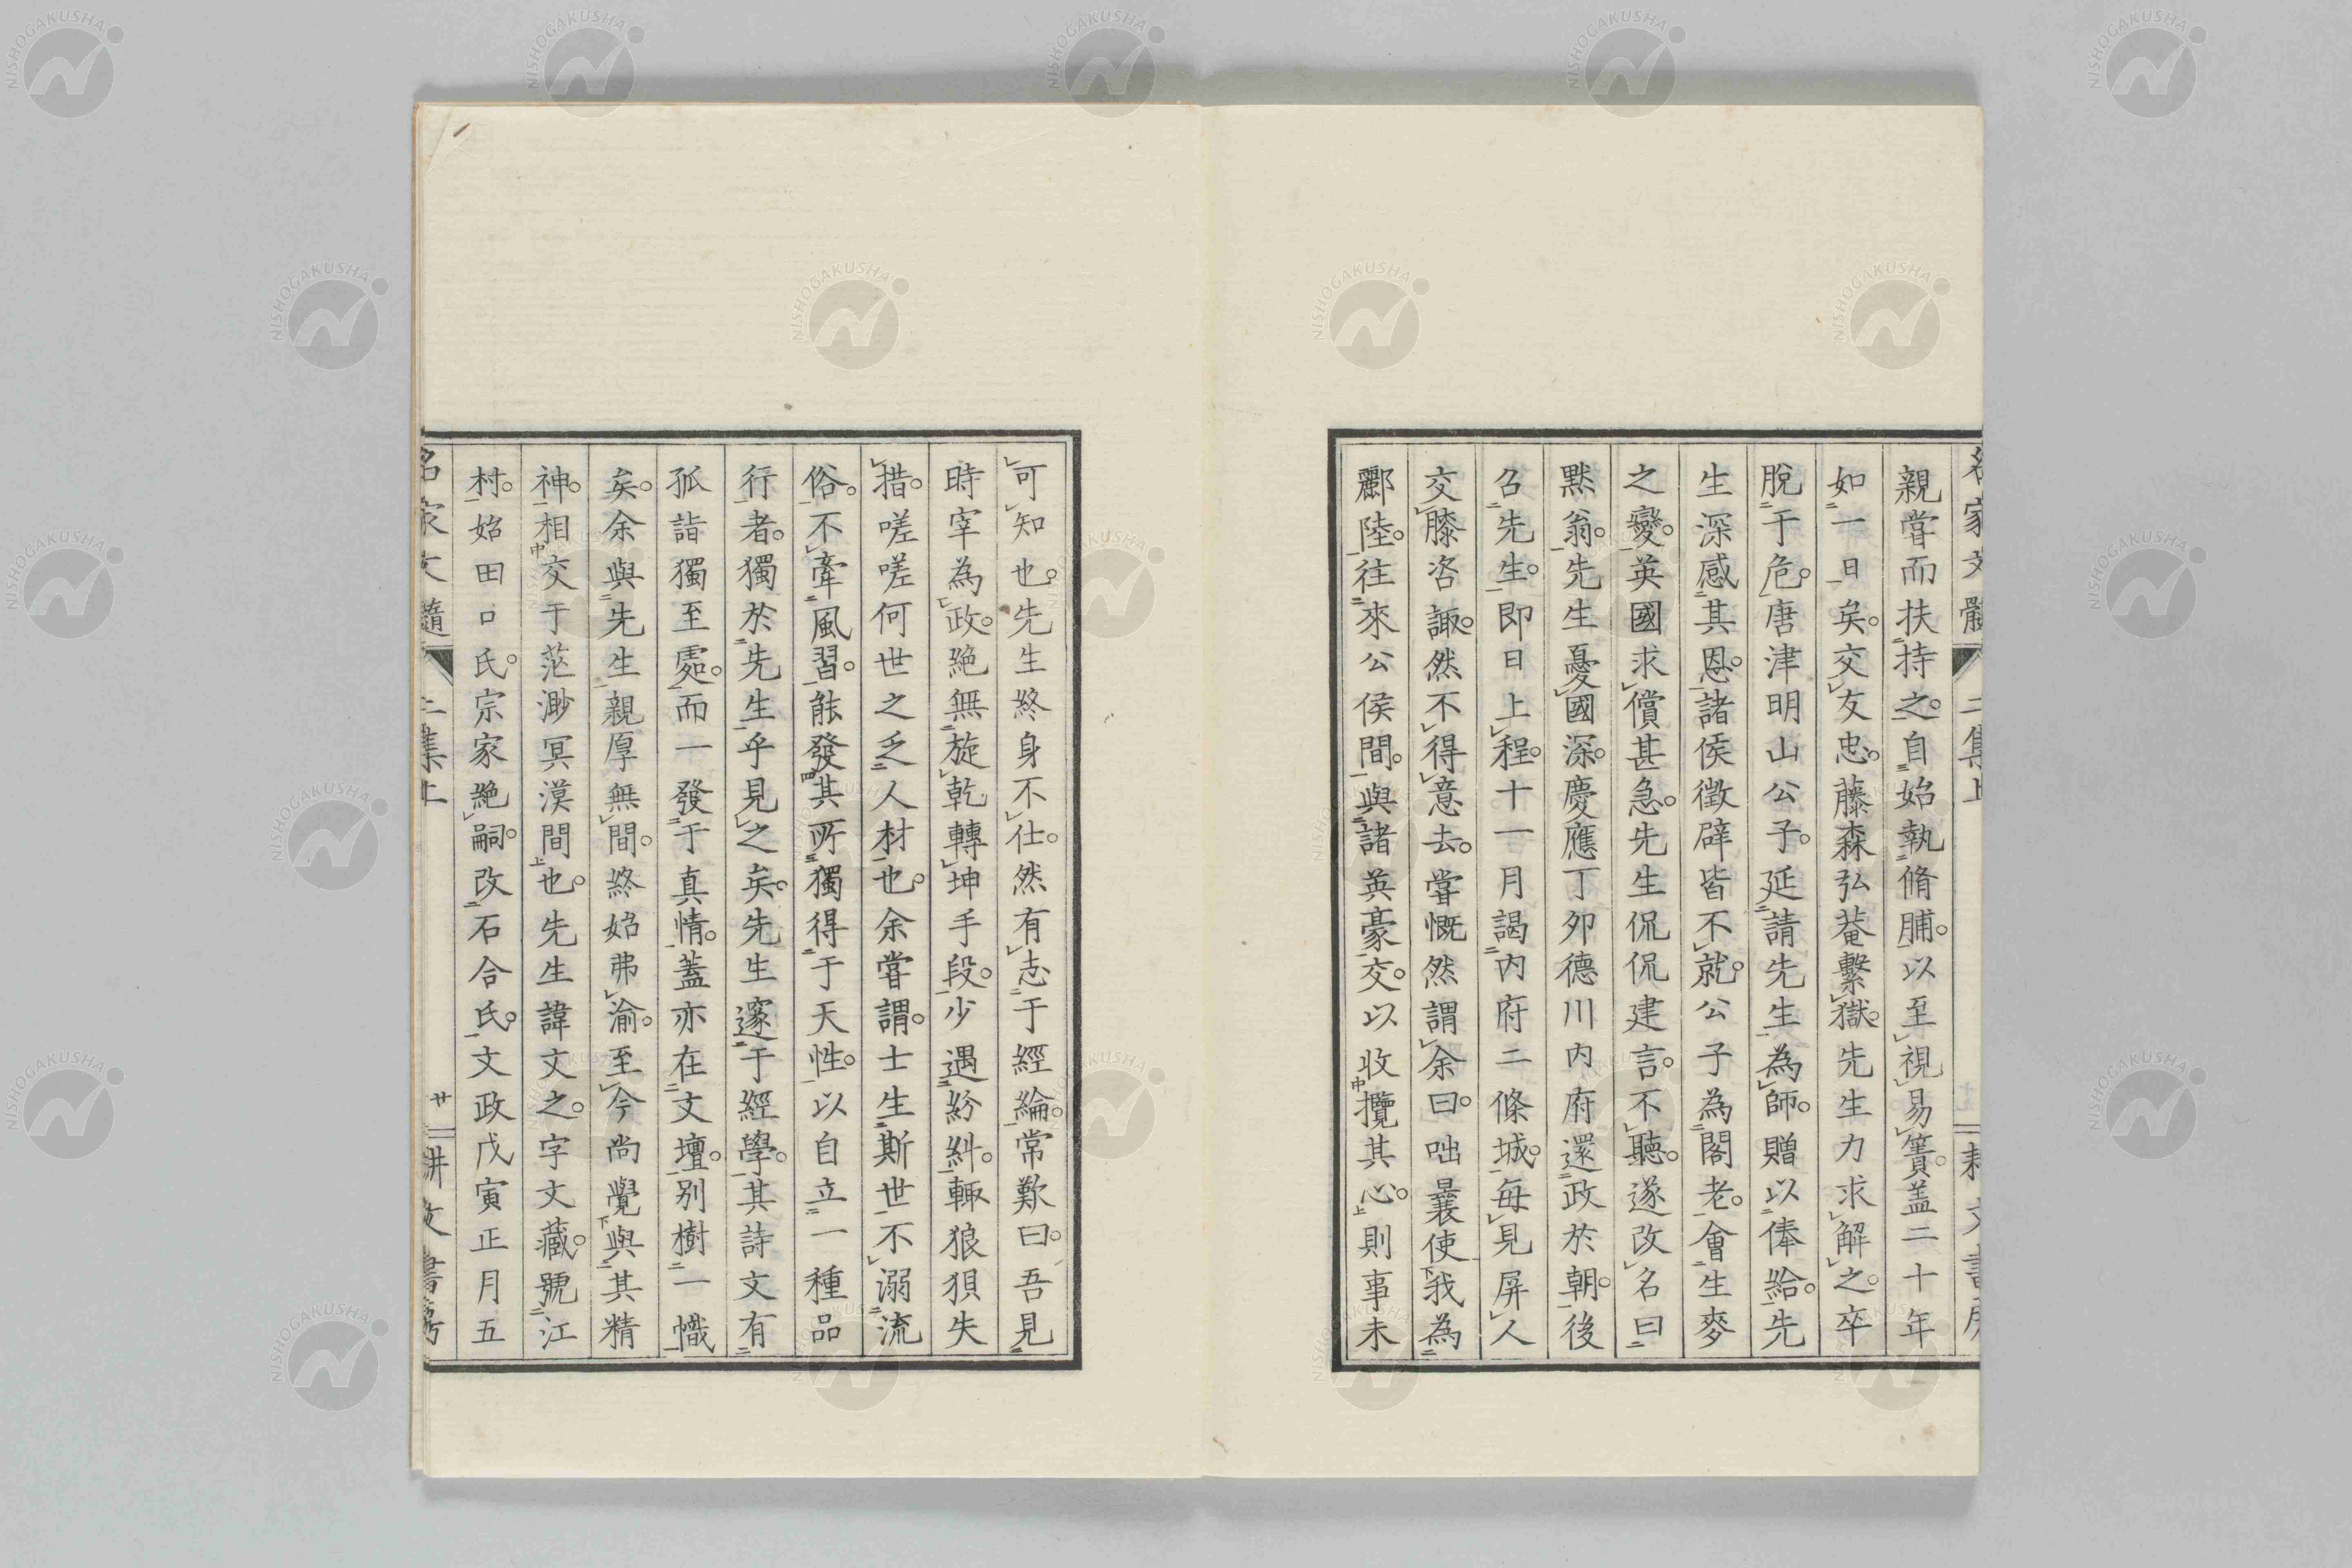 親嘗而扶持之。自始執脩脯。以至視易簀。盖二十年
如一日矣。交友忠。藤森弘菴繫獄。先生力求解之。卒
脫于危。唐津明山公子。延請先生為師。贈以俸給。先
生深感其恩。諸侯徵辟皆不就。公子為閣老。會生麥
之變。英國求償甚急。先生侃侃建言。不聽。遂改名曰
默翁。先生憂國深。慶應丁夘德川內府還政於朝。後
召先生。即日上程。十一月謁內府二條城。每見屏人
交膝咨諏。然不得意去。嘗慨然謂余曰。咄曩使我為
酈陸。往來公侯間。與諸英豪交。以收攬其心。則事未
可知也。先生終身不仕。然有志于經綸。常歎曰。吾見
時宰為政。絶無旋乾轉坤手段。少遇紛糾。輙狼狽失
措。嗟嗟何世之乏人材也。余嘗謂。士生斯世不溺流
俗。不牽風習。能發其所獨得于天性。以自立一種品
行者。獨於先生乎見之矣。先生邃于經學。其詩文有
孤詣獨至處。而一發于真情。蓋亦在文壇。別樹一幟
矣。余與先生親厚無間。終始弗渝。至今尚覺與其精
神。相交于茫渺冥漠間也。先生諱文之。字文藏。號江
村。始田口氏。宗家絶嗣。改石合氏。文政戊寅正月五
名家文髓
二集上
廿
耕文書房
NISHOGAKUSHA